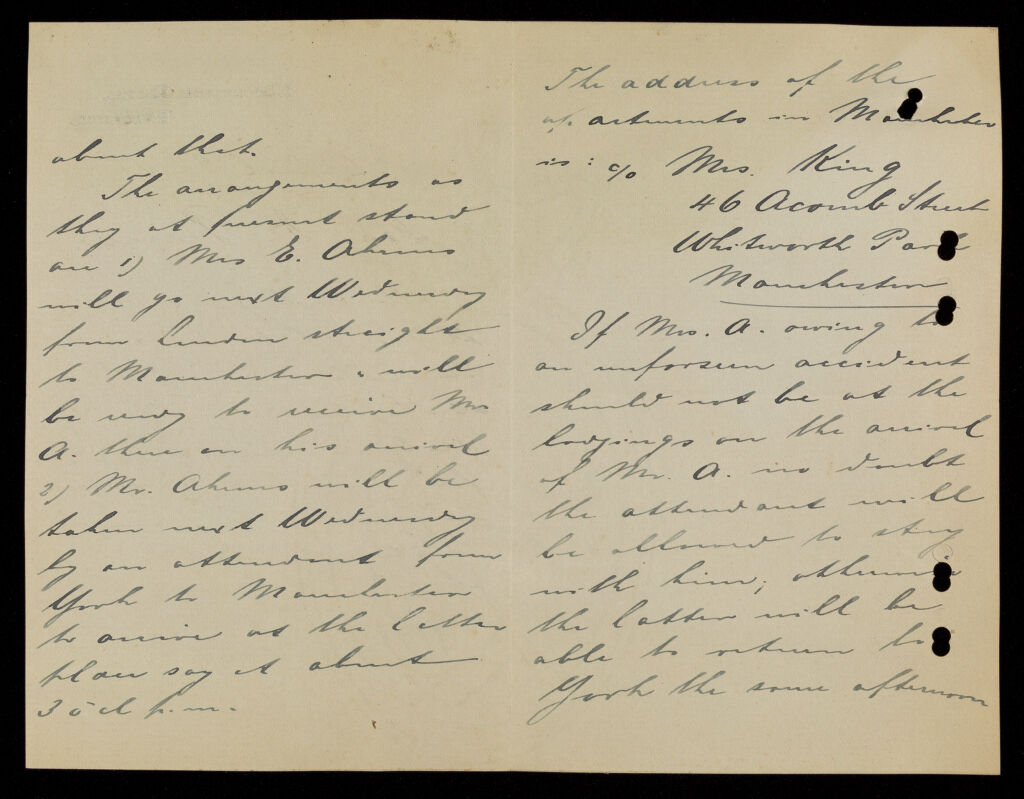 about that.
The arrangements as
they at present stand
are 1) Mrs E. Ahrens
will go next Wednesday
from London straight
to Manchester & will
be ready to receive Mr
A. there on his arrival
2) Mr. Ahrens will be
taken next Wednesday
by an attendant from
York to Manchester
to arrive at the latter
place say at about
3 o'cl p.m.
The address of the
apartments in Manchester
is: c/o Mrs. King
46 Acomb Street
Whitworth Park
Manchester
If Mrs. A. owing to
an unforseen accident
should not be at the
lodgings on the arrival
of Mr. A. no doubt
the attendant will
be allowed to stay
with him; otherwise
the latter will be
able to return to
York the same afternoon